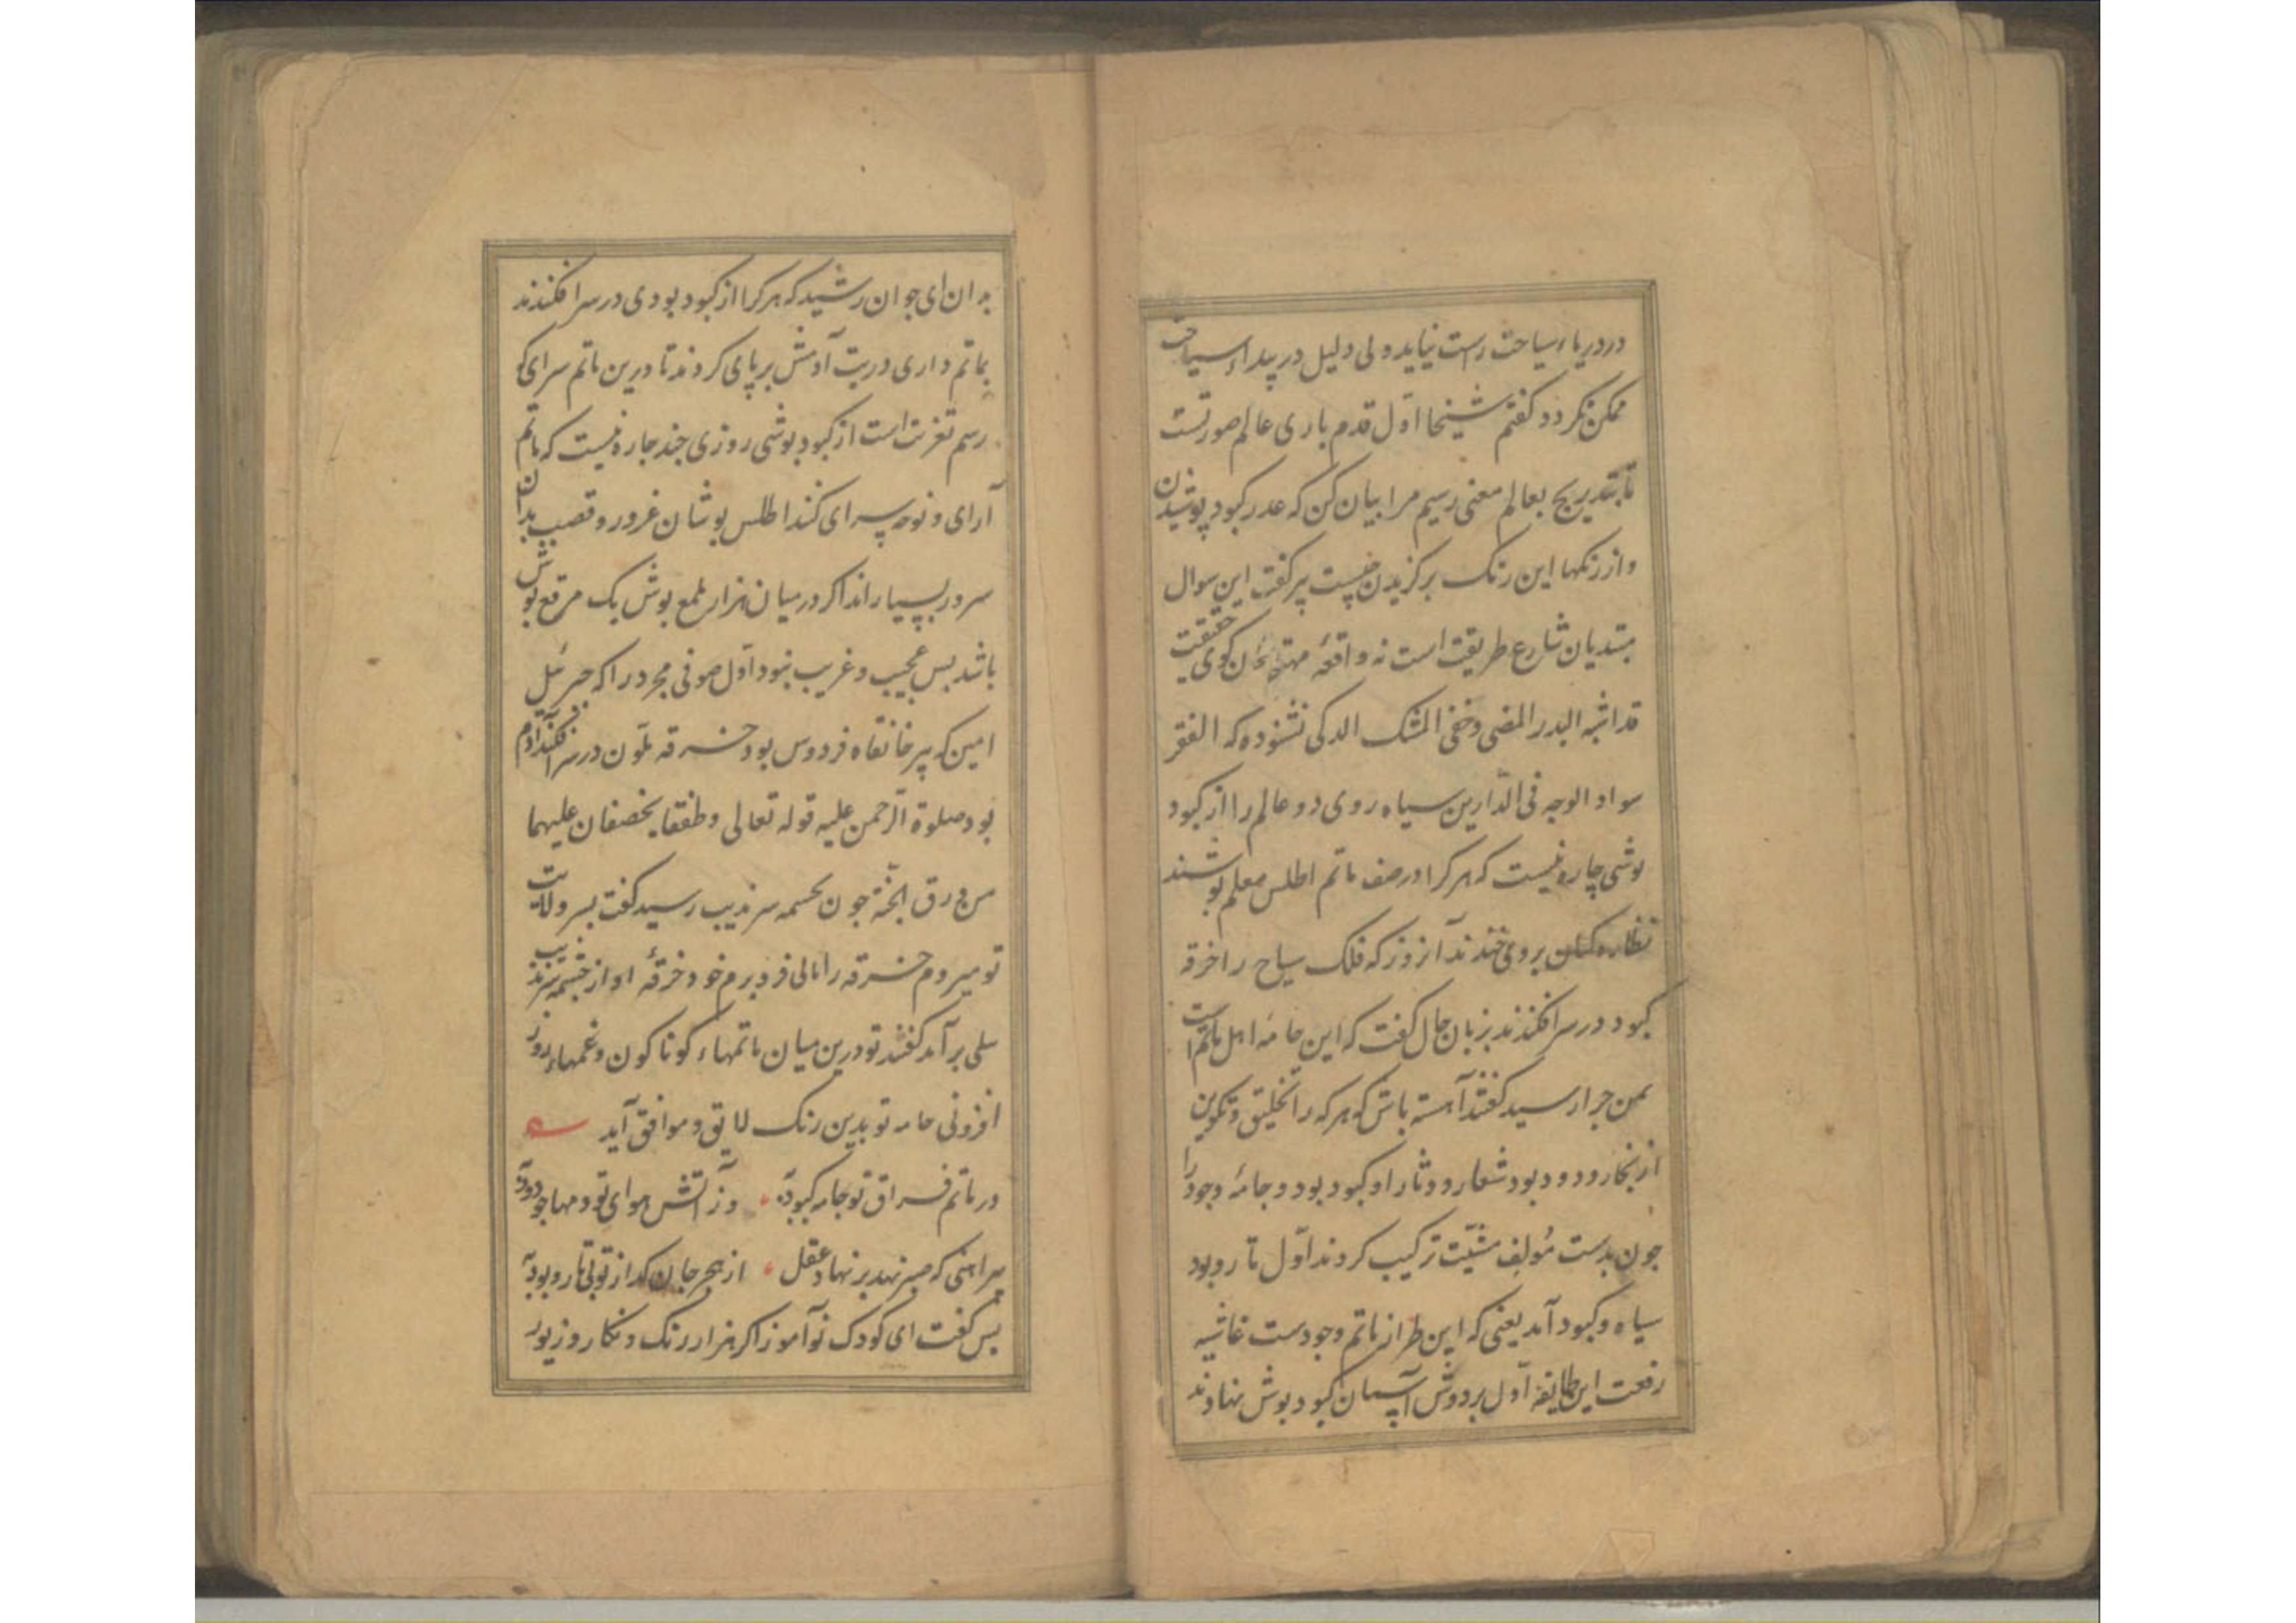 در دریاء سیاحت راست نیاید و لی دلیل در بیداء سیاحت
ممکن نکردد کفتم شیخا اوّل قدم باری عالم صورتست
تا بتدریج بعالم معنی رسیم مرا بیان کن که عذر کبود پوشیدن
و از رنکها این رنک برکزیدن چیست پیر کفت این سوال
مبتدیان شارع طریقت است نه واقعهٔ منتهیان کوی حقیقت
قد اشبه البدر المضی وخفی المشک الذکی نشنودهٔ که الفقر
سواد الوجه فی الدّارین سیاه روی دو عالم را از کبود
پوشی چاره نیست که هر کرا در صف ماتم اطلس معلم پوشند
نظاره کنان بروی خندند آنروز که فلک سیاح را خرقه
کبود در سر افکندند بزبان حال کفت که این جامهٔ اهل ماتم است
بمن چرا رسید کفتند آهسته باش که هر که را تخلیق و تکوین
از بخار و دود بود شعار و دثار او کبود بود و جامهٔ وجود را
جون بدست مؤلف مشیّت ترکیب کردند اوّل تار و پود
سیاه و کبود آمد یعنی که این طراز ماتم وجودست غاشیه
رفعت این طایفه اوّل بر دوش آسمان کبود پوش نهادند
بدان ای جوان رشید که هر کرا از کبود بودی در سر افکندند
بماتم داری در بیت آدمش بر پای کردند تا درین ماتم سرای کو
رسم تعزیت است از کبود پوشی روزی چند چاره نیست که ماتم
آرای و نوحه سرای کند اطلس پوشان غرور و قصب بندان
سرور بسیارند اکر در میان هزار ملمع پوش یک مرقع پوش
باشد بس عجیب و غریب نبود اوّل صوفی مجرد را که جبرئیل
امین که پیر خانقاه فردوس بود خرقه ملّون در سر افکند آدم
بود صلوة الرّحمن علیه قوله تعالی وطفقا یخصفان علیهما
من ورق الجنّة جون بچشمه سرندیب رسید کفت بسر ولایت
تو میروم خرقه را نالی فرو برم خود خرقهٔ او از چشمه سرندیب
نیلی بر آمد کفتند تو درین میان ماتمهاء کوناکون و غمهاء روز
افزونی جامه تو بدین رنک لایق و موافق آید
در ماتم فراق تو جامه کبود به وز آتش هوای تو دمها چو دود به
پیراهنی که صبر نهد بر نهاد عقل از هجر جان کداز تو بی تار و پود به
پس کفت ای کودک نوآموز اکر هزار رنک و نکار و زیور